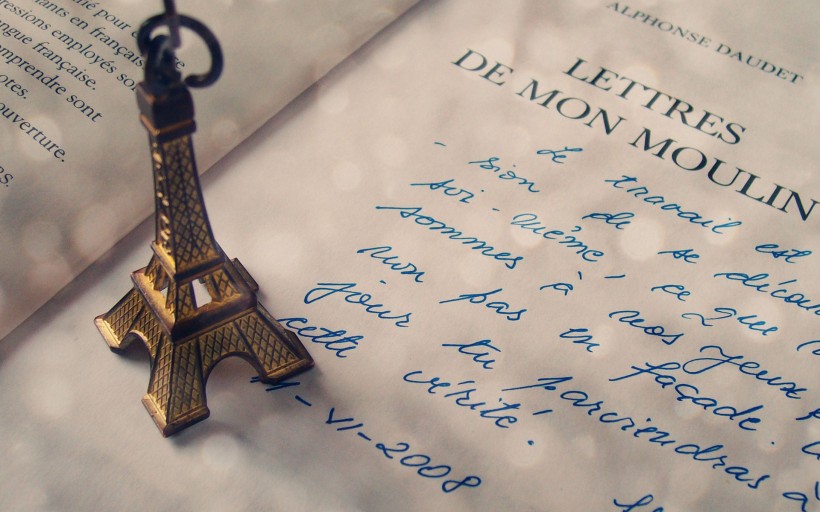 pour
ants en français
ressions employés so
ngue française.
omprendre sont
ores.
ouverture.
ALPHONSE DAUDET
LETTRES
DE MON MOULIN
Le travail est
- sion de se décou
soi-même, ce que
sommes à nos yeux
non pas en façade.
jour tu parviendras à
cette vérité.
11-VI-2008